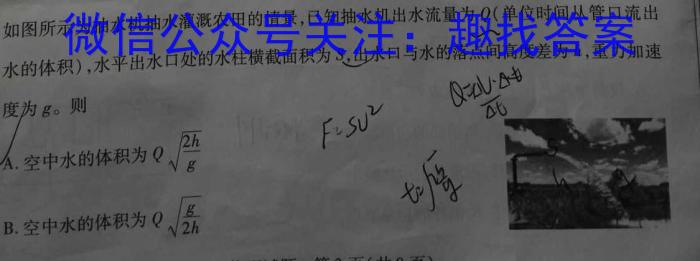 如图所示为抽水机抽水灌溉农田的情景,已知抽水机出水流量为Q(单位时间从管口流出
微信公众号关注：趣找答案
水的体积),水平出水口处的水柱横截面积为S,出水口与水的落点间高度差为h,重力加速
度为g。则
F=SU²
A.空中水的体积为Q√(2h/g)
B.空中水的体积为Q√(g/2h)
S
h